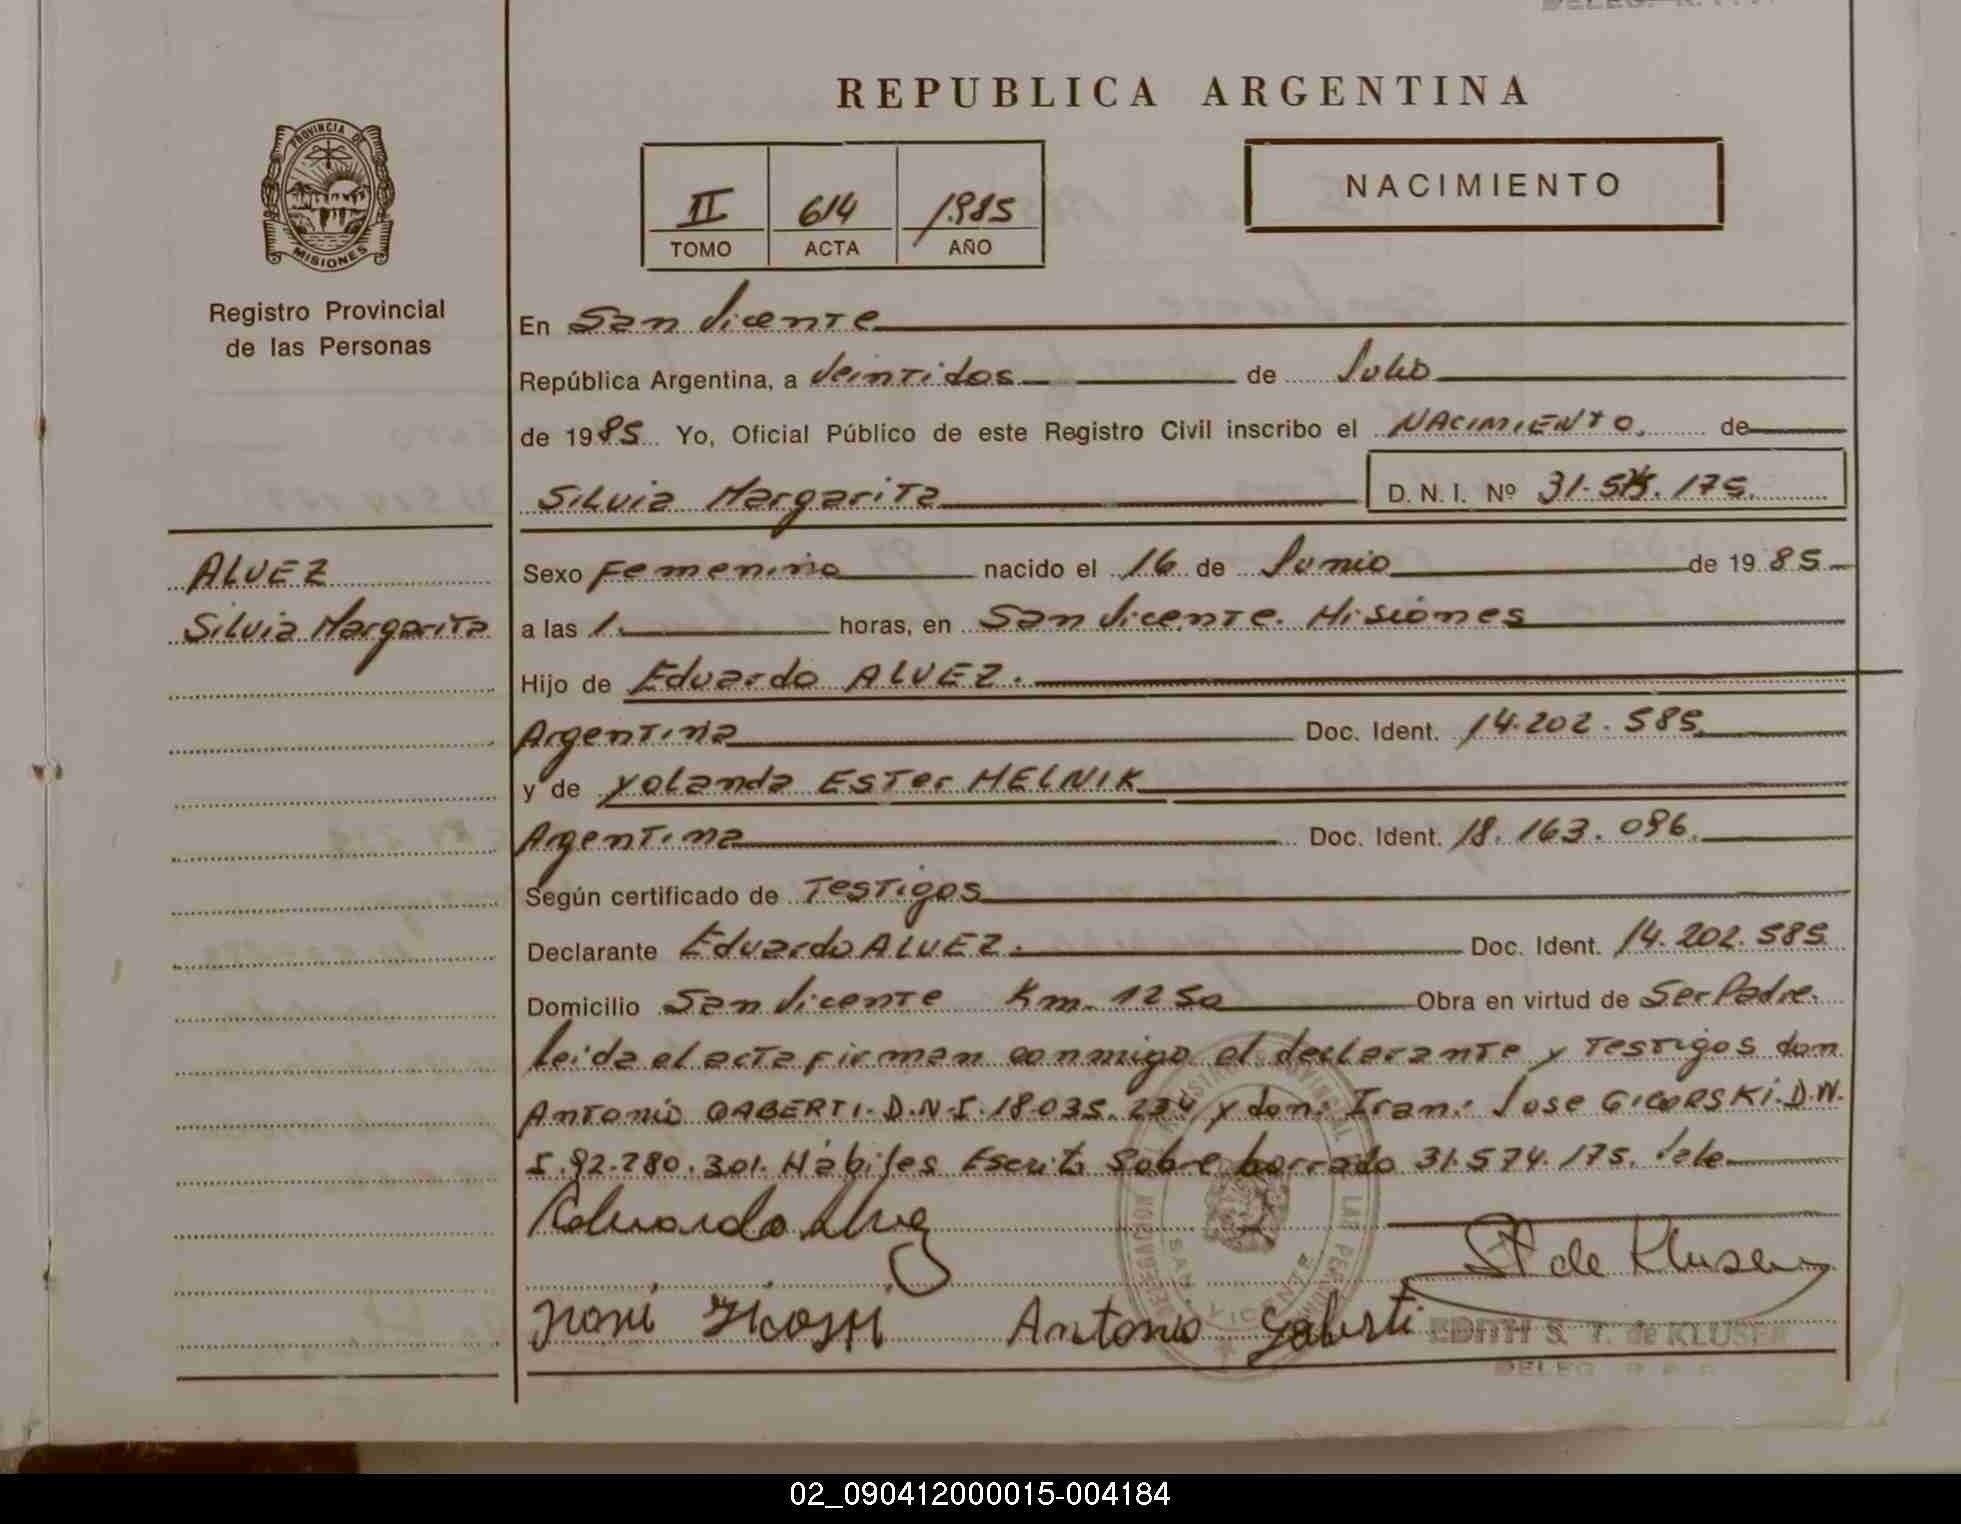 REPUBLICA ARGENTINA
PROVINCIA DE
MISIONES
Registro Provincial
de las Personas
II 614 1985
TOMO ACTA AÑO
NACIMIENTO
En San Vicente
República Argentina, a Veintidos de Julio
de 1985 Yo, Oficial Público de este Registro Civil inscribo el NACIMIENTO. de
Silvia Margarita D. N. I. Nº 31.574.175.
ALVEZ
Silvia Margarita
Sexo Femenino nacido el 16 de Junio de 1985
a las 1. horas, en San Vicente. Misiones
Hijo de Eduardo ALVEZ.
Argentina Doc. Ident. 14.202.585
y de Yolanda ESTer MELNIK
Argentina Doc. Ident. 18.163.096.
Según certificado de Testigos
Declarante Eduardo ALVEZ. Doc. Ident. 14.202.585
Domicilio San Vicente Km. 1250 Obra en virtud de Ser Padre.
leida el acta firman conmigo el declarante y Testigos don
Antonio GABERTI. D.N.I. 18.035.234 y don: Iran: Jose GICORSKI. D.N.
I. 92.780.301. Hábiles Escrito Sobre borrado 31.574.175. Vale
Eduardo Alvez
St de Kluser
Antonio Gaberti
EDITH S. T. de KLUSER
DELEG. R. P. P.
SAN VICENTE
02_090412000015-004184